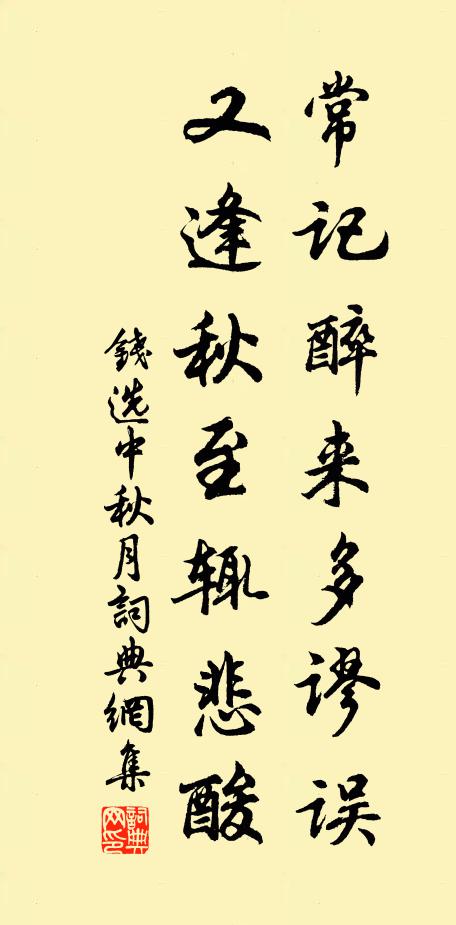 常记醉来多谬误
又逢秋至辄悲酸
錢选中秋月詞典網集
詞典网印